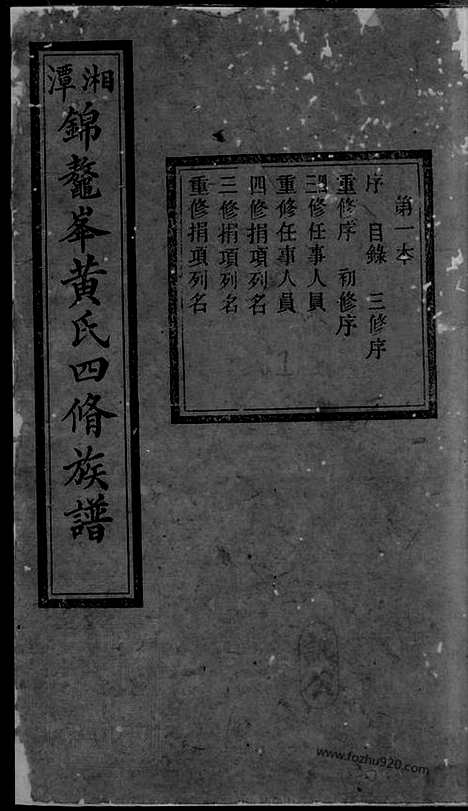 第一本
序 目錄 三修序
重修序 初修序
修任事人員
重修任事人員
四修捐項列名
三修捐項列名
重修捐項列名
湘潭
錦鼇峯黃氏四脩族譜
www.fozhu920.com